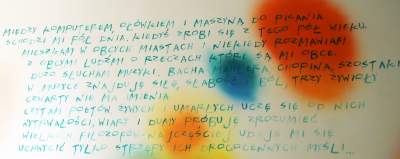 MIĘDZY KOMPUTEREM, OŁÓWKIEM I MASZYNĄ DO PISANIA
SCHODZI MI PÓŁ DNIA. KIEDYŚ ZROBI SIĘ Z TEGO PÓŁ WIEKU.
MIESZKAM W OBCYCH MIASTACH I NIEKIEDY ROZMAWIAM
Z OBCYMI LUDŹMI O RZECZACH KTÓRE SĄ MI OBCE.
DUŻO SŁUCHAM MUZYKI: BACHA MAHLERA CHOPINA, SZOSTAK
W MUZYCE ZNAJDUJĘ SIŁĘ, SŁABOŚĆ I BÓL, TRZY ŻYWIOŁY
CZWARTY NIE MA IMIENIA
CZYTAM POETÓW ŻYWYCH I UMARŁYCH UCZĘ SIĘ OD NICH
WYTRWAŁOŚCI, WIARY I DUMY PRÓBUJĘ ZROZUMIEĆ
WIELKICH FILOZOFÓW NAJCZĘŚCIEJ UDAJE MI SIĘ
UCHWYCIĆ TYLKO STRZĘPY ICH DROGOCENNYCH MYŚLI...